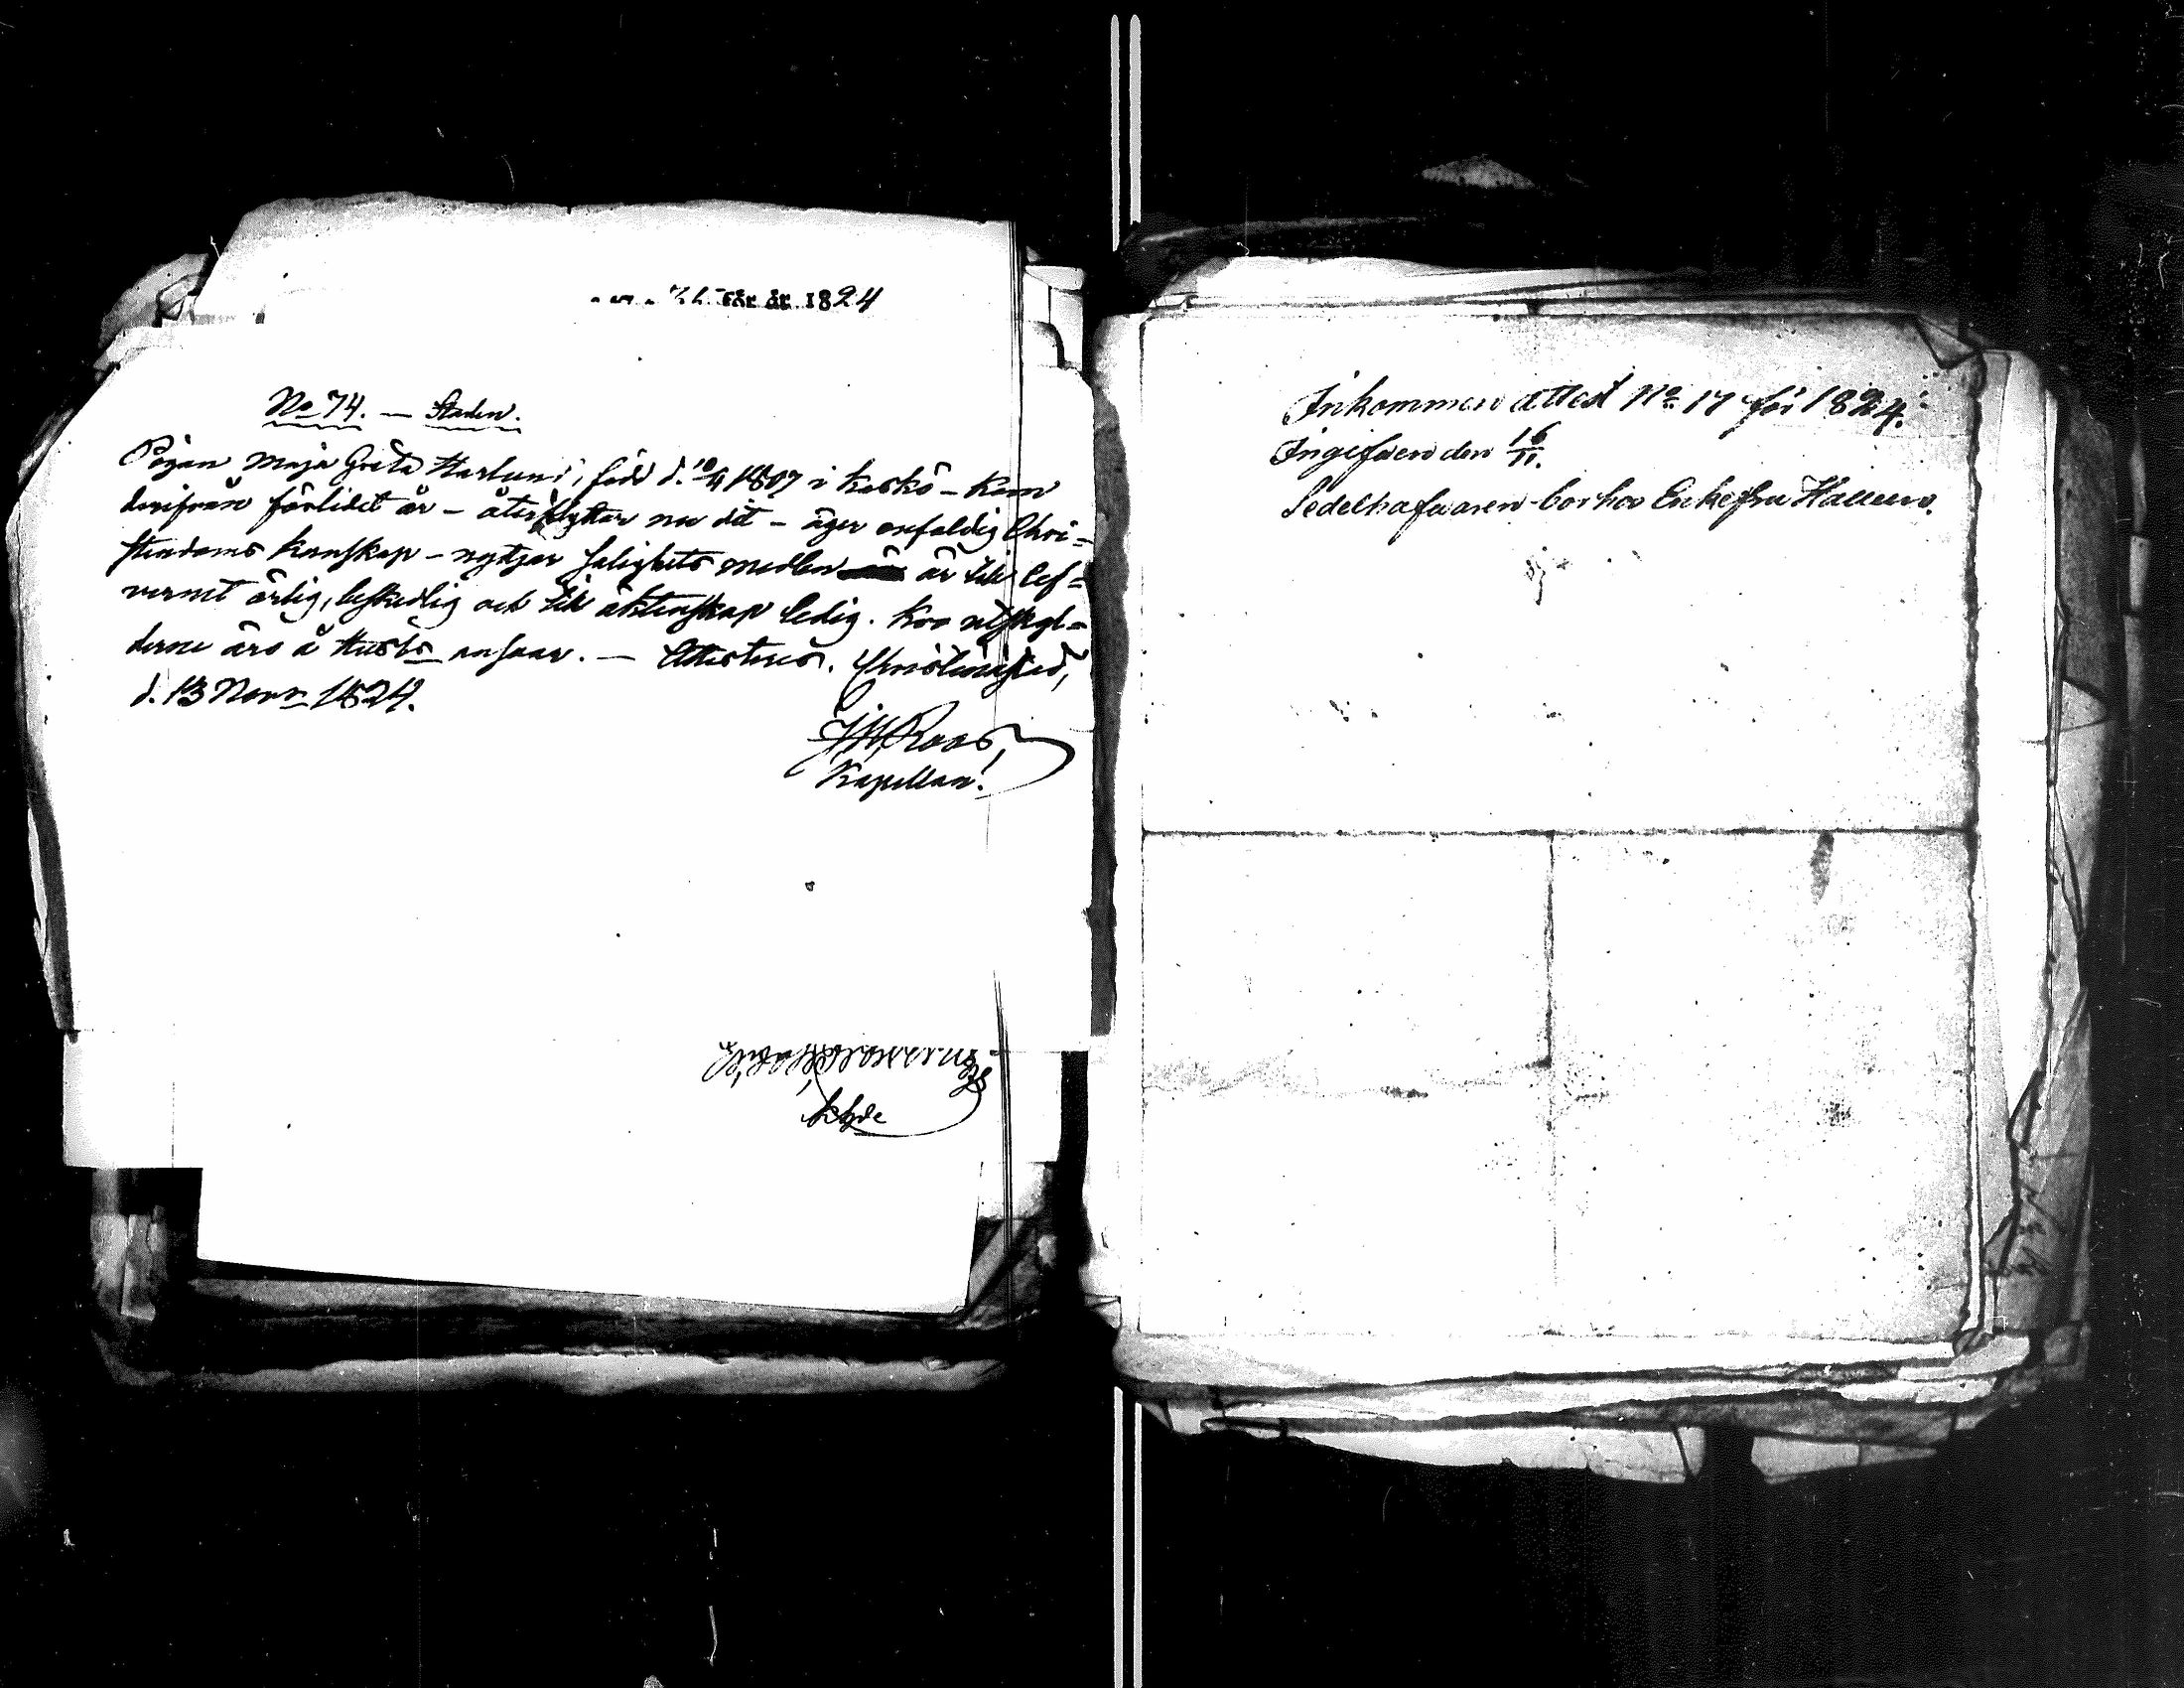 för år 1824
No 74. — Staden.
Pigan Maja Greta Harlund, född d. 10/4 1807 i Kaskö – kom
derifrån förlidet år – återflyttar nu dit – äger enfaldig Chri=
stendoms kunskap – nyttjar salighets medlen är till lef=
vernet ärlig, beskedlig och till äktenskap ledig. Kro utskyl=
derne äro å Husbs ansvar. — Attesteras. Christinestad,
d. 13 Novr 1824.
Roos,
Kapellan.
Inkommen attest No 17 för 1824.
Ingifven den 16/11.
Sedelhafvaren bor hos Enkefru